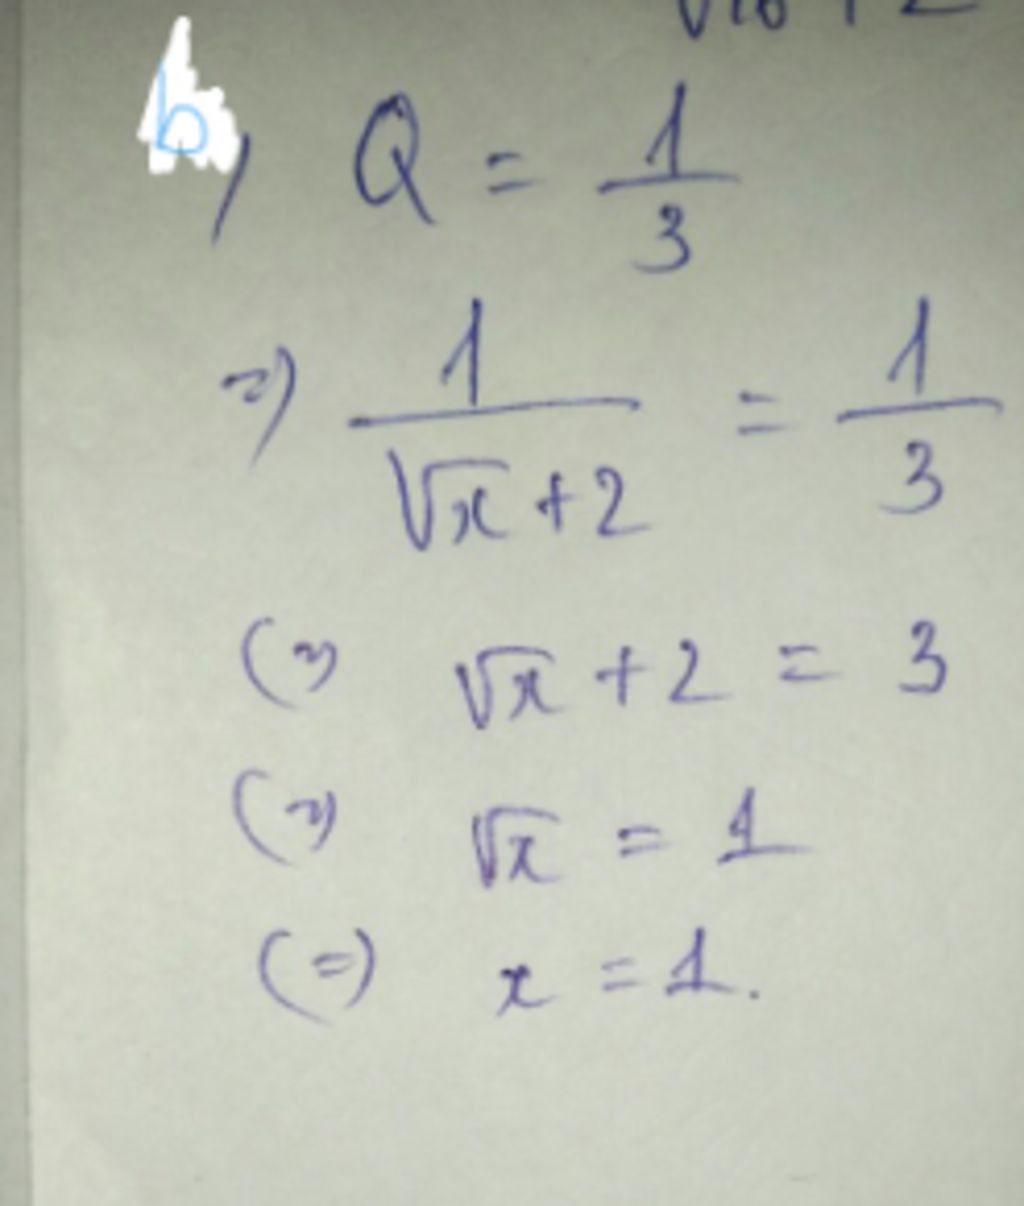 √16 + 2
b) Q = 1/3
=) 1/(√x + 2) = 1/3
(=) √x + 2 = 3
(=) √x = 1
(=) x = 1.